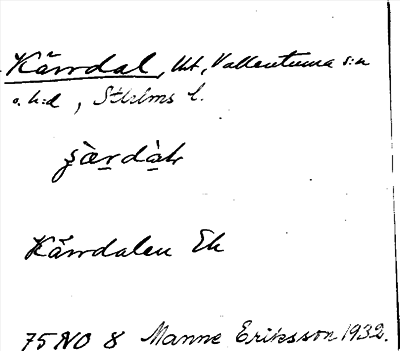 Kärrdal, Uti, Vallentuna s:n
o. h:d, Sthlms l.
Kärrdalen Ek
75 NO 8 Manne Eriksson 1932.